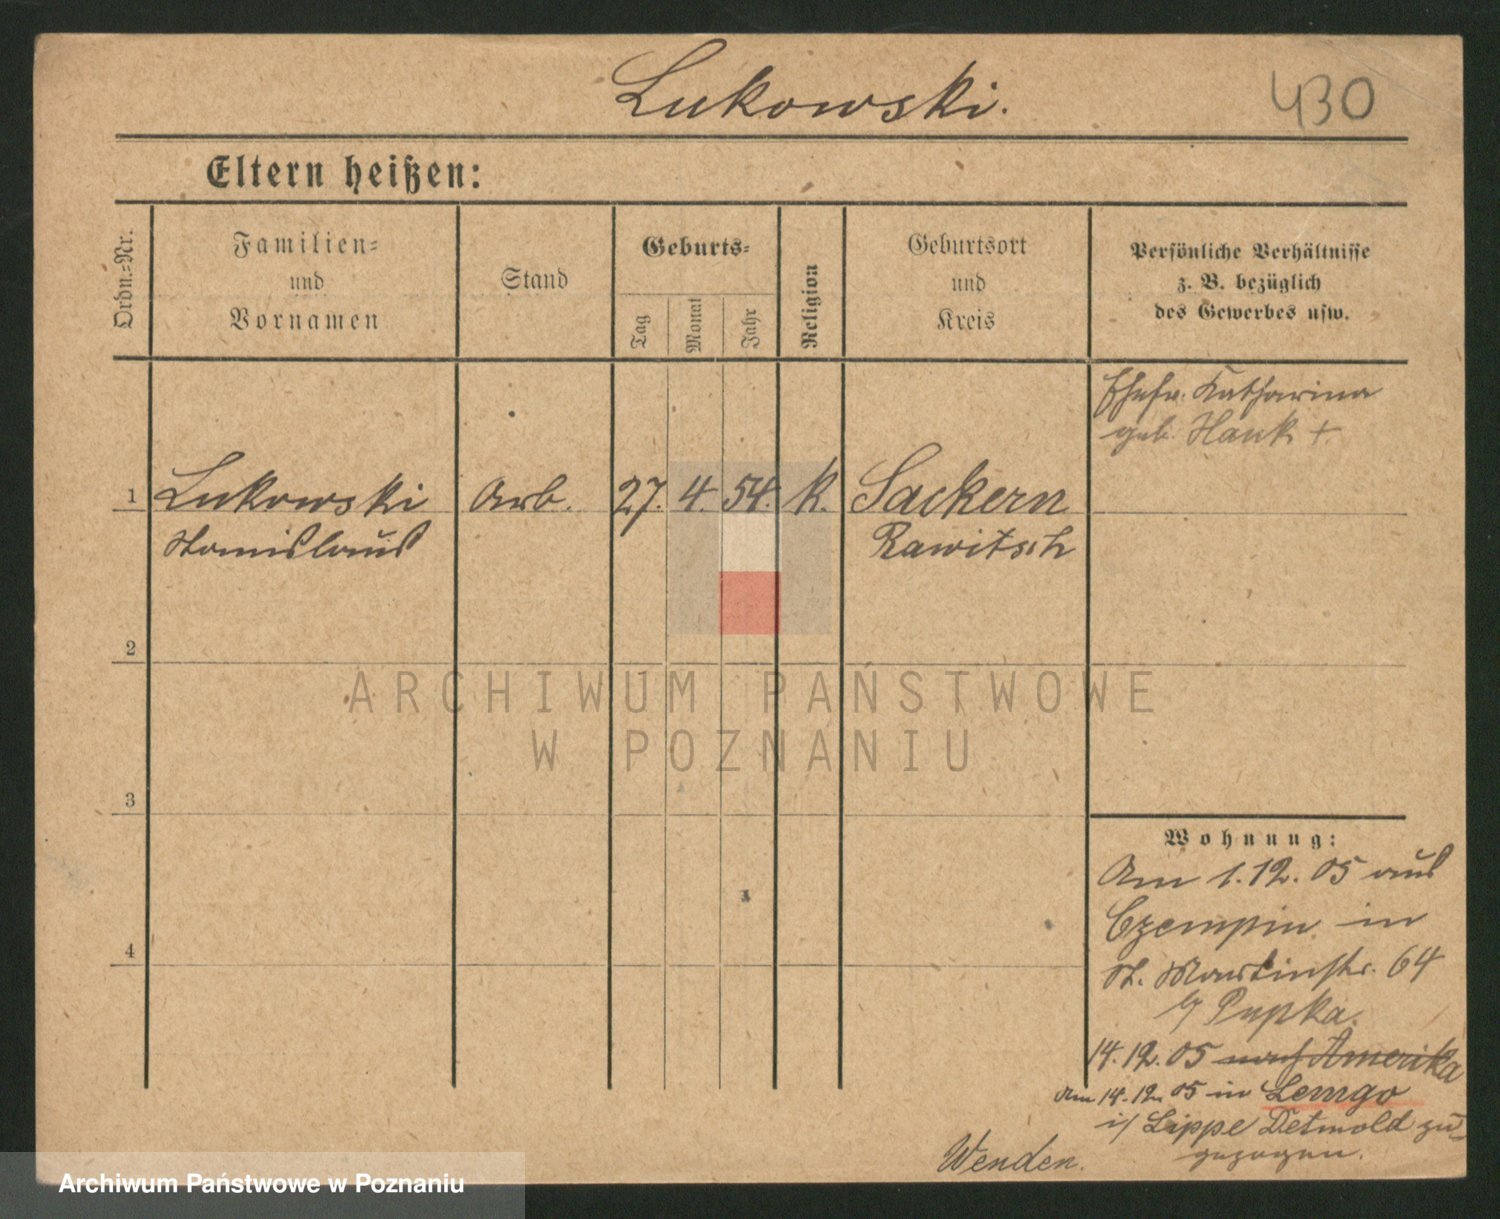 Lukowski.
430
Eltern heißen:
Ordn.=Nr.
Familien=
und
Vornamen
Stand
Geburts=
Tag
Monat
Jahr
Religion
Geburtsort
und
Kreis
Persönliche Verhältnisse
z. B. bezüglich
des Gewerbes usw.
Ehefr. Katharina
geb. Hauk +.
1 Lukowski Arb. 27. 4. 54. k. Sackern
Stanislaus Rawitsch
2
ARCHIWUM PAŃSTWOWE
W POZNANIU
3
Wohnung:
Am 1.12.05 aus
Czempin in
4
St. Martinstr. 64
b/ Pupka.
14.12.05 nach Amerika
Am 14.12.05 in Lemgo
i/ Lippe Detmold zu=
gezogen.
Wenden.
Archiwum Państwowe w Poznaniu